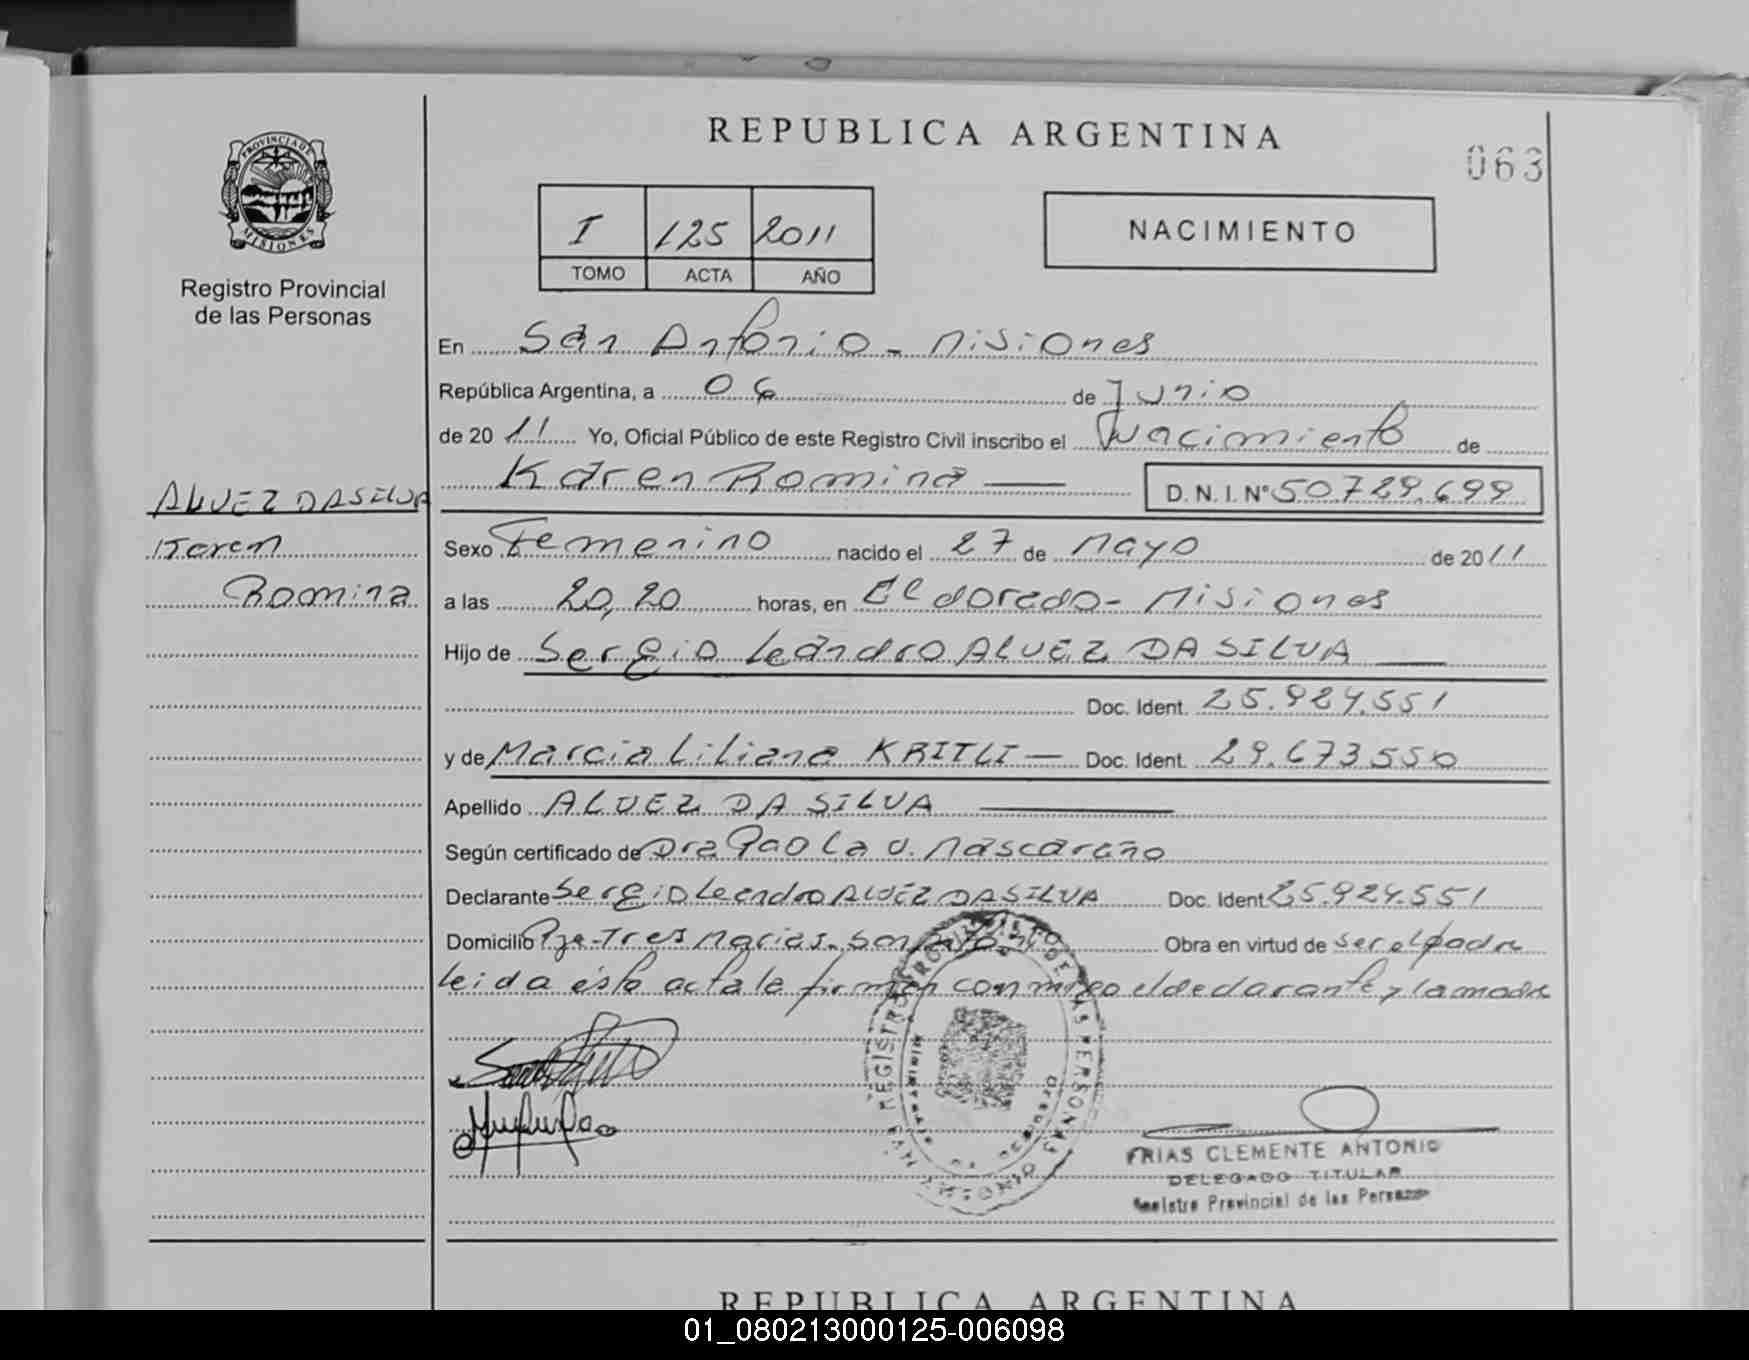 REPUBLICA ARGENTINA
063
PROVINCIA DE MISIONES
Registro Provincial
de las Personas
I 125 2011
TOMO ACTA AÑO
NACIMIENTO
En San Antonio - Misiones
República Argentina, a 06 de Junio
de 2011 Yo, Oficial Público de este Registro Civil inscribo el Nacimiento de
Karen Romina D. N. I. N° 50.729.699
ALVEZ DA SILVA
Karen
Romina
Sexo Femenino nacido el 27 de Mayo de 2011
a las 20,20 horas, en Eldorado - Misiones
Hijo de Sergio Leandro ALVEZ DA SILVA
Doc. Ident. 25.924.551
y de Marcia Liliana KRITLI Doc. Ident. 29.673.550
Apellido ALVEZ DA SILVA
Según certificado de Dra Paola V. Mascareño
Declarante Sergio Leandro ALVEZ DA SILVA Doc. Ident. 25.924.551
Domicilio Pje. Tres Marias - San Antonio Obra en virtud de ser el padre
leida ésta acta la firman conmigo el declarante y la madre
FRIAS CLEMENTE ANTONIO
DELEGADO TITULAR
Registro Provincial de las Personas
REPUBLICA ARGENTINA
01_080213000125-006098